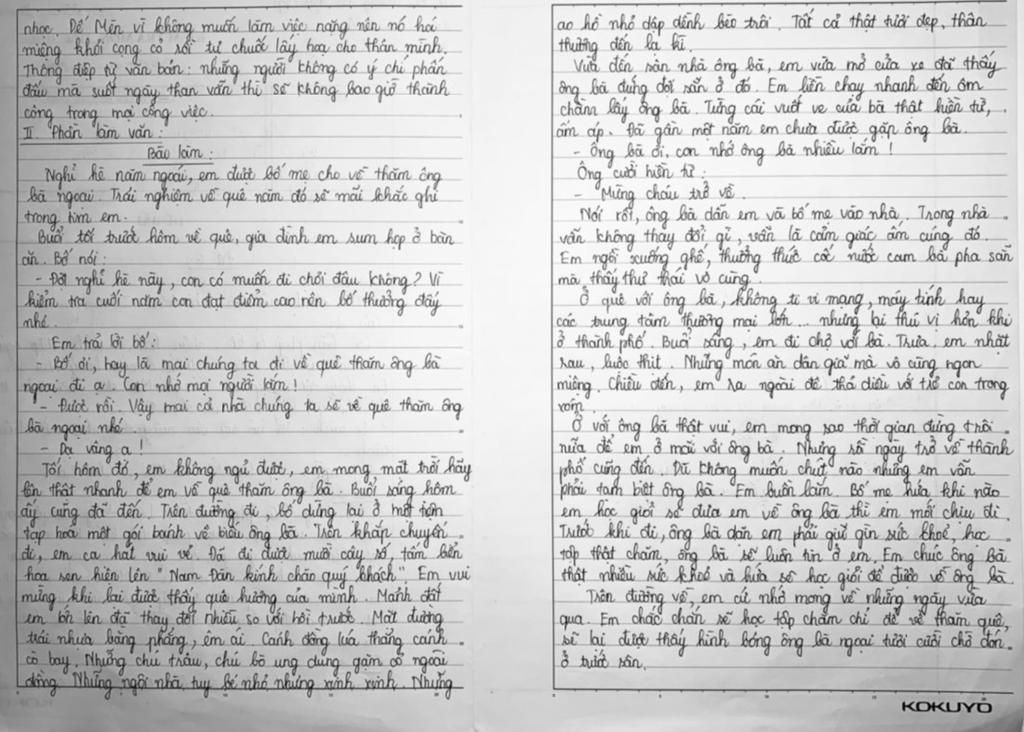 nhọc. Dế Mèn vì không muốn làm việc nặng nên nó há
miệng khỏi cọng cỏ rồi tự chuốt lấy hoạ cho thân mình.
Thông điệp từ văn bản: những người không có ý chí phấn
đấu mà suốt ngày than vãn thì sẽ không bao giờ thành
công trong mọi công việc.
II. Phần làm văn:
Bão làm:
Nghỉ hè năm ngoái, em được bố mẹ cho về thăm ông
bà ngoại. Trải nghiệm về quê năm đó sẽ mãi khắc ghi
trong tim em.
Buổi tối trước hôm về quê, gia đình em sum họp ở bàn
ăn. Bố nói:
- Đợt nghỉ hè này, con có muốn đi chơi đâu không? Vì
kiểm tra cuối năm con đạt điểm cao nên bố thưởng đấy
nhé.
Em trả lời bố:
- Bố ơi, hay là mai chúng ta đi về quê thăm ông bà
ngoại đi ạ. Con nhớ mọi người lắm!
- Được rồi. Vậy mai cả nhà chúng ta sẽ về quê thăm ông
bà ngoại nhé.
- Dạ vâng ạ!
Tối hôm đó, em không ngủ được, em mong mặt trời hãy
lên thật nhanh để em về quê thăm ông bà. Buổi sáng hôm
ấy cũng đã đến. Trên đường đi, bố dừng lại ở một tiệm
tạp hoá một gói bánh về biếu ông bà. Trên khắp chuyến
đi, em ca hát vui vẻ. Đã đi được mười cây số, tấm biển
hoa sen hiện lên "Nam Đàn kính chào quý khách". Em vui
mừng khi lại được thấy quê hương của mình. Mảnh đất
em lớn lên đã thay đổi nhiều so với hồi trước. Mặt đường
trải nhựa bằng phẳng, êm ái. Cánh đồng lúa thẳng cánh
cò bay. Những chú trâu, chú bò ung dung gặm cỏ ngoài
đồng. Những ngôi nhà, tuy bé nhỏ nhưng xinh xinh. Những
ao hồ nhỏ dập dềnh bèo trôi. Tất cả thật tươi đẹp, thân
thương đến lạ kì.
Vừa đến sân nhà ông bà, em vừa mở cửa xe đã thấy
ông bà đứng đợi sẵn ở đó. Em liền chạy nhanh đến ôm
chầm lấy ông bà. Từng cái vuốt ve của bà thật hiền từ,
ấm áp. Đã gần một năm em chưa được gặp ông bà.
- Ông bà ơi, con nhớ ông bà nhiều lắm!
Ông cười hiền từ:
- Mừng cháu trở về.
Nói rồi, ông bà dẫn em và bố mẹ vào nhà. Trong nhà
vẫn không thay đổi gì, vẫn là cảm giác ấm cúng đó.
Em ngồi xuống ghế, thưởng thức cốc nước cam bà pha sẵn
mà thấy thư thái vô cùng.
Ở quê với ông bà, không ti vi mạng, máy tính hay
các trung tâm thương mại lớn... nhưng lại thú vị hơn khi
ở thành phố. Buổi sáng, em đi chợ với bà. Trưa, em nhặt
rau, luộc thịt. Những món ăn dân giã mà vô cùng ngon
miệng. Chiều đến, em ra ngoài để thả diều với trẻ con trong
xóm.
Ở với ông bà thật vui, em mong sao thời gian đừng trôi
nữa để em ở mãi với ông bà. Nhưng số ngày trở về thành
phố cũng đến. Dù không muốn chút nào nhưng em vẫn
phải tạm biệt ông bà. Em buồn lắm. Bố mẹ hứa khi nào
em học giỏi sẽ đưa em về ông bà thì em mới chịu đi.
Trước khi đi, ông bà dặn em phải giữ gìn sức khoẻ, học
tập thật chăm, ông bà sẽ luôn tin ở em. Em chúc ông bà
thật nhiều sức khoẻ và hứa sẽ học giỏi để được về ông bà.
Trên đường về, em cứ nhớ mong về những ngày vừa
qua. Em chắc chắn sẽ học tập chăm chỉ để về thăm quê,
sẽ lại được thấy hình bóng ông bà ngoại tươi cười chờ đón
ở trước sân.
KOKUYO